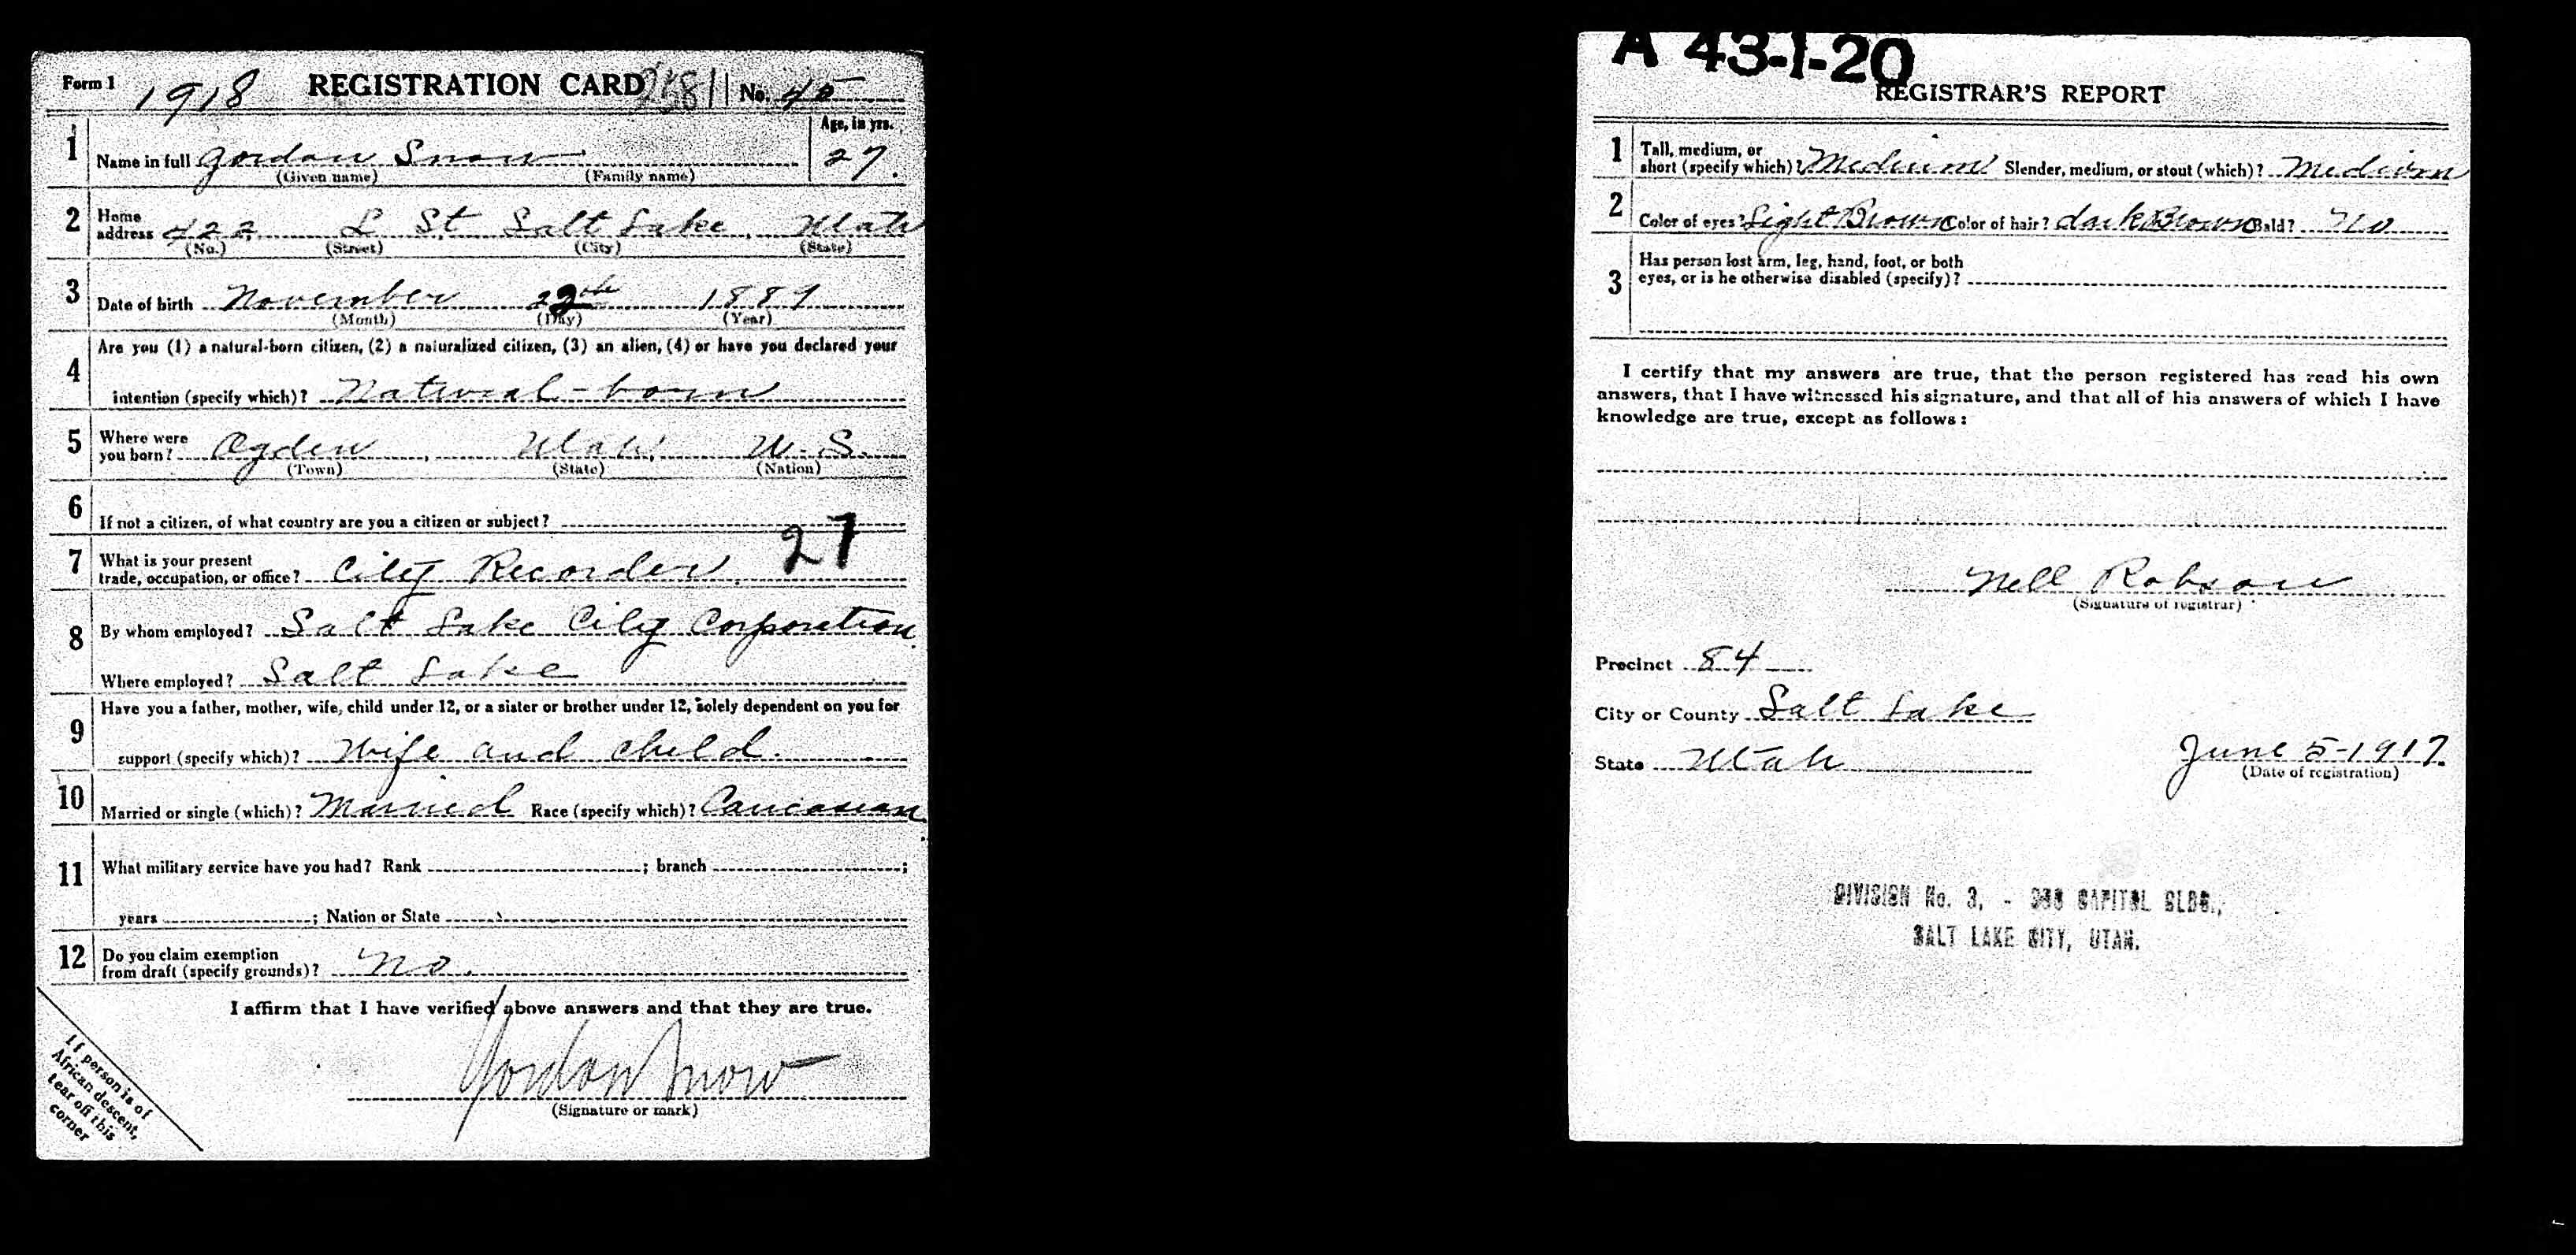 Form 1 1918 REGISTRATION CARD No. 45
1 Name in full Gordon Snow Age, in yrs. 27.
(Given name) (Family name)
2 Home address 422 L St Salt Lake, Utah
(No.) (Street) (City) (State)
3 Date of birth November 22th 1889
(Month) (Day) (Year)
4 Are you (1) a natural-born citizen, (2) a naturalized citizen, (3) an alien, (4) or have you declared your
intention (specify which)? Natural-born
5 Where were you born? Ogden, Utah, U.S.
(Town) (State) (Nation)
6 If not a citizen, of what country are you a citizen or subject?
27
7 What is your present trade, occupation, or office? City Recorder
8 By whom employed? Salt Lake City Corporation
Where employed? Salt Lake
9 Have you a father, mother, wife, child under 12, or a sister or brother under 12, solely dependent on you for
support (specify which)? Wife and child.
10 Married or single (which)? Married Race (specify which)? Caucasian
11 What military service have you had? Rank ; branch ;
years ; Nation or State
12 Do you claim exemption from draft (specify grounds)? No.
I affirm that I have verified above answers and that they are true.
Gordon Snow
(Signature or mark)
If person is of
African descent,
tear off this
corner
A 43-1-20
REGISTRAR'S REPORT
1 Tall, medium, or short (specify which)? Medium Slender, medium, or stout (which)? Medium
2 Color of eyes? Light Brown Color of hair? dark Brown Bald? No
3 Has person lost arm, leg, hand, foot, or both
eyes, or is he otherwise disabled (specify)?
I certify that my answers are true, that the person registered has read his own
answers, that I have witnessed his signature, and that all of his answers of which I have
knowledge are true, except as follows:
Nell Robson
(Signature of registrar)
Precinct 84
City or County Salt Lake
State Utah June 5-1917.
(Date of registration)
DIVISION No. 3, - CAPITOL BLDG.,
SALT LAKE CITY, UTAH.